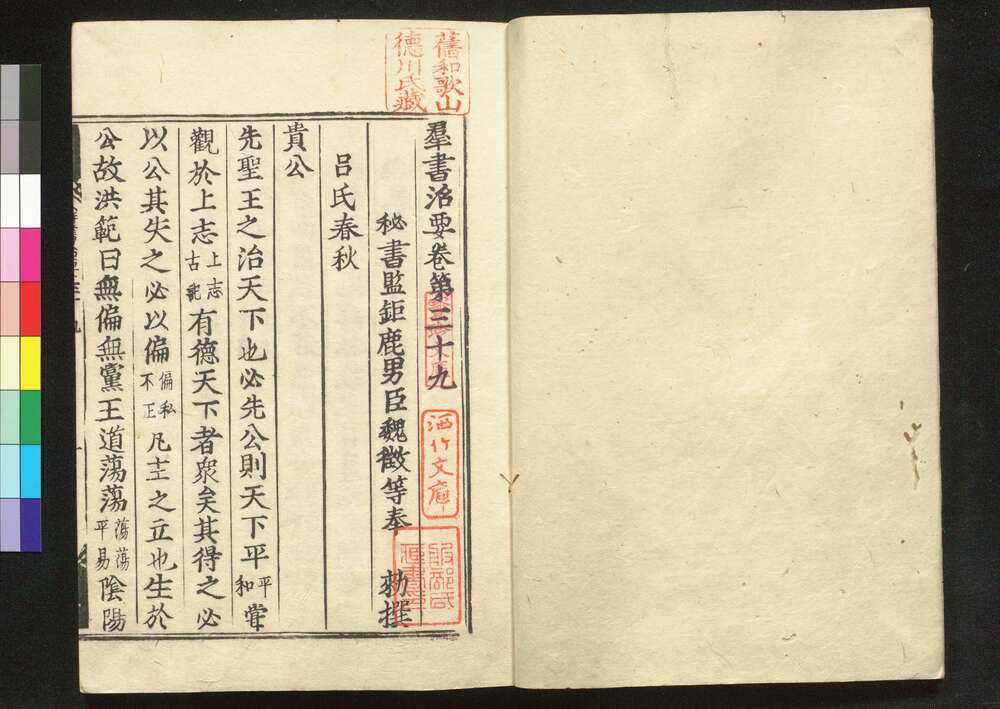 羣書治要卷第三十九
秘書監鉅鹿男臣魏徵等奉 勑撰
呂氏春秋
貴公
先聖王之治天下也必先公則天下平平和甞
觀於上志上志古記有德天下者衆矣其得之必
以公其失之必以偏偏私不正凡主之立也生於
公故洪範曰無偏無黨王道蕩蕩蕩蕩平易陰陽
舊和歌山
德川氏藏
洒竹文庫